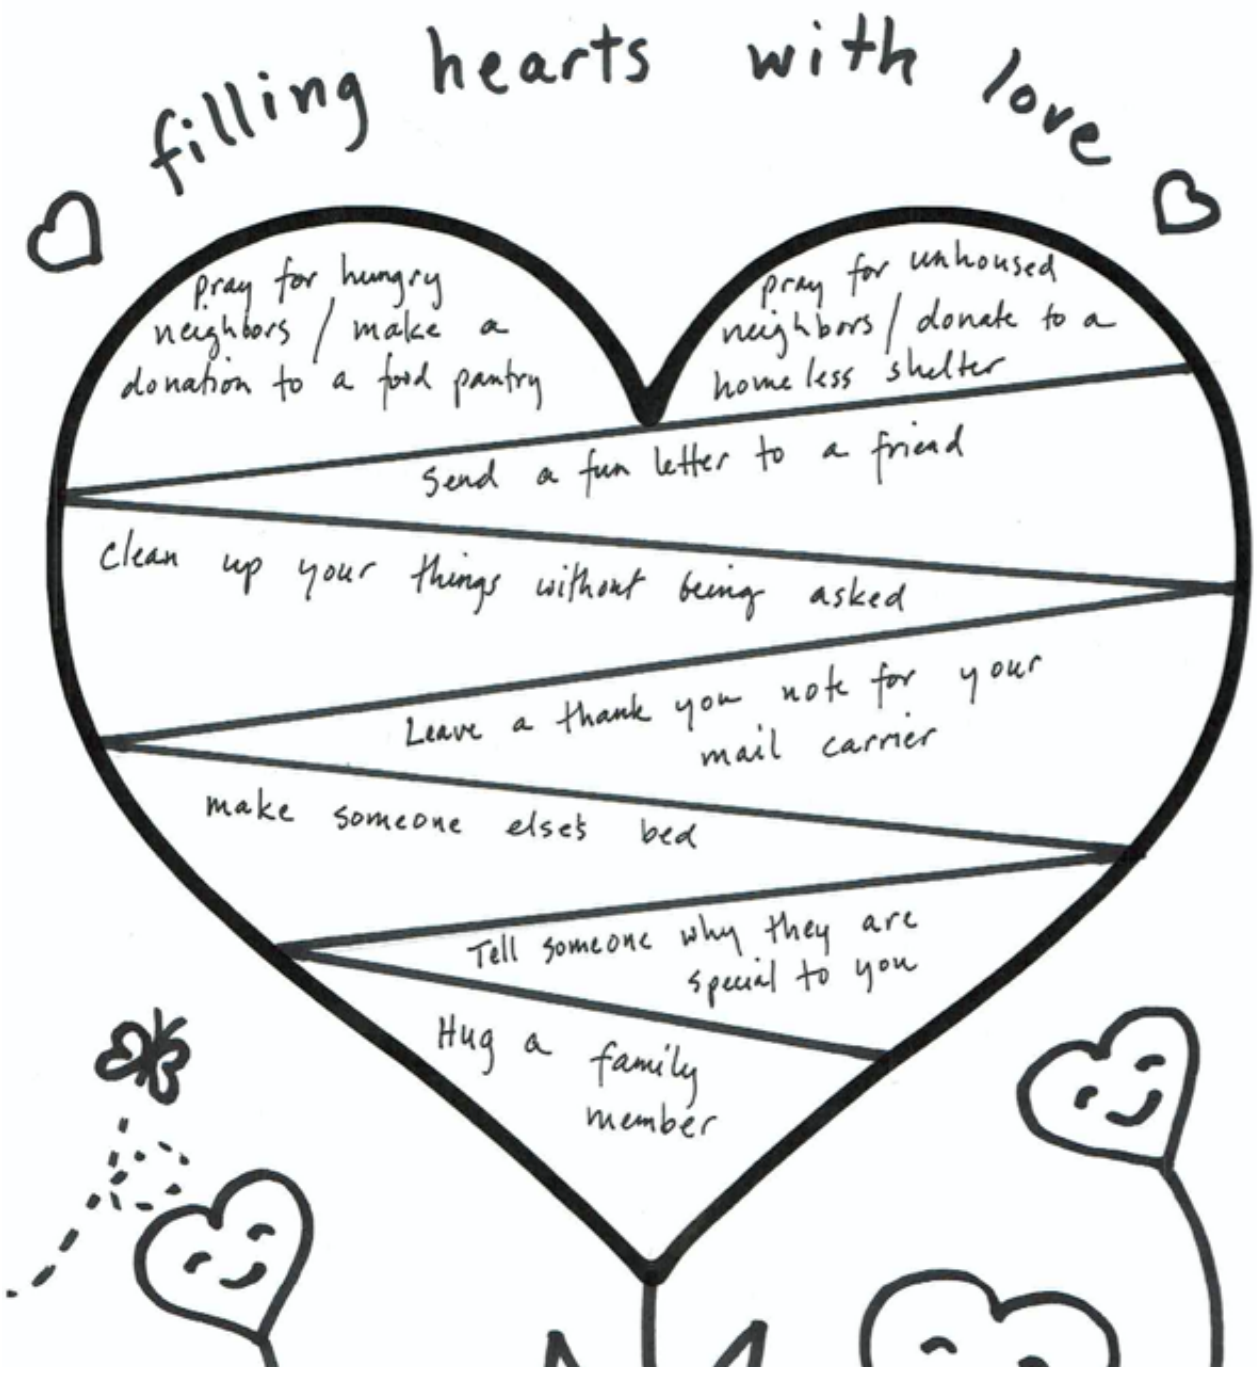 filling hearts with love
pray for hungry
neighbors / make a
donation to a food pantry
pray for unhoused
neighbors / donate to a
homeless shelter
Send a fun letter to a friend
Clean up your things without being asked
Leave a thank you note for your
mail carrier
make someone else's bed
Tell someone why they are
special to you
Hug a family
member